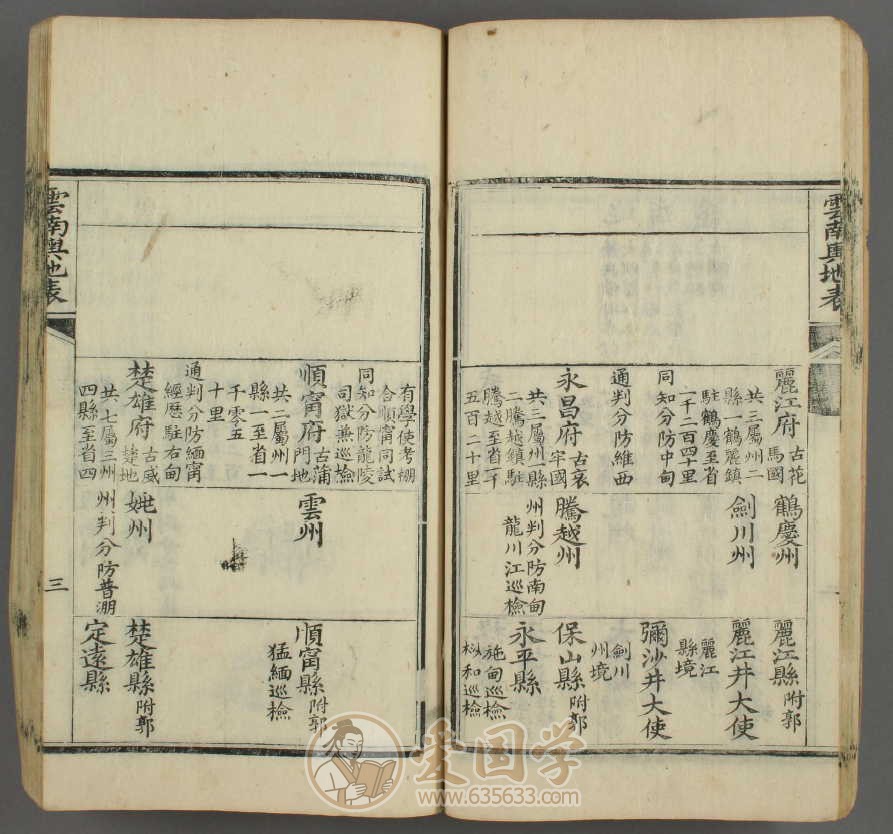 雲南輿地表
麗江府 古花
馬國
共三屬州二
縣一鶴麗鎮
駐鶴慶至省
一千二百四十里
同知分防中甸
通判分防維西
永昌府 古哀
牢國
共三屬州一縣
二騰越鎮駐
騰越至省一千
五百二十里
鶴慶州
劍川州
騰越州
州判分防南甸
龍川江巡檢
麗江縣附郭
麗江井大使
麗江
縣境
彌沙井大使
劍川
州境
保山縣附郭
永平縣
施甸巡檢
和巡檢
有學使考棚
合順甯同試
同知分防龍陵
司獄兼巡檢
順甯府 古蒲
門地
共二屬州一
縣一至省一
千零五
十里
通判分防緬甯
經歷駐右甸
楚雄府 古威
楚地
共七屬三州
四縣至省四
雲州
姚州
州判分防普淜
順甯縣附郭
猛緬巡檢
楚雄縣附郭
定遠縣
雲南輿地表
三
爱国学
www.635633.com